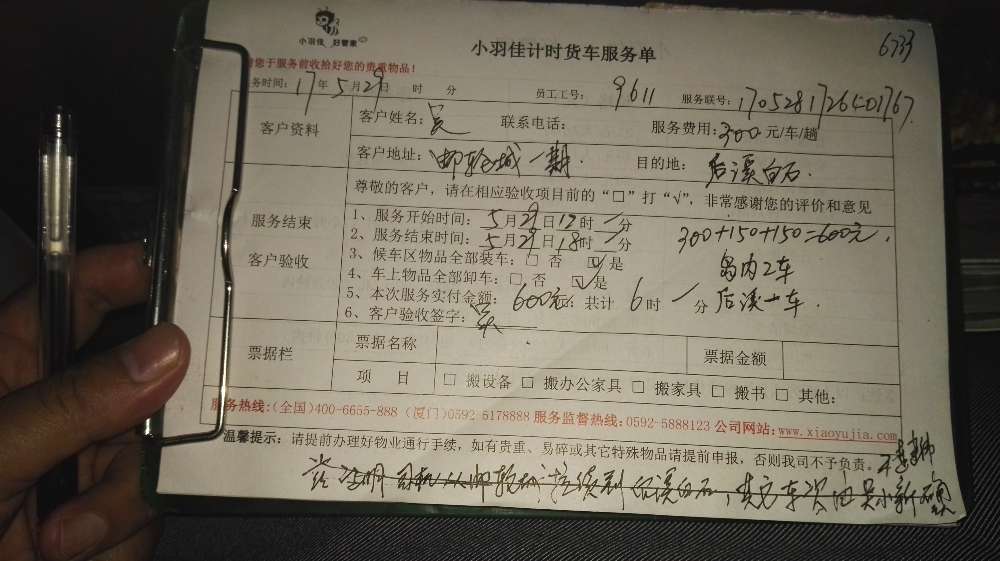 小羽佳 好管家
小羽佳计时货车服务单
6733
您于服务前收拾好您的贵重物品!
务时间: 17年5月29日 时 分 员工工号: 9611 服务联号: 1705281726401767
客户资料
客户姓名: 吴 联系电话: 服务费用: 300元/车/趟
客户地址: 邮轮城一期. 目的地: 后溪白石.
服务结束
客户验收
尊敬的客户,请在相应验收项目前的“□”打“√”,非常感谢您的评价和意见
1、服务开始时间: 5月29日12时/分
300+150+150=600元.
2、服务结束时间: 5月29日18时/分
岛内2车
3、候车区物品全部装车: □ 否 ☑ 是
4、车上物品全部卸车: □ 否 ☑ 是
后溪一车.
5、本次服务实付金额: 600元; 共计 6时/分
6、客户验收签字: 吴
票据栏
票据名称 票据金额
项 目 □ 搬设备 □ 搬办公家具 □ 搬家具 □ 搬书 □ 其他:
服务热线:(全国)400-6655-888 (厦门)0592-5178888 服务监督热线:0592-5888123 公司网站:www.xiaoyujia.com
温馨提示: 请提前办理好物业通行手续,如有贵重、易碎或其它特殊物品请提前申报,否则我司不予负责。